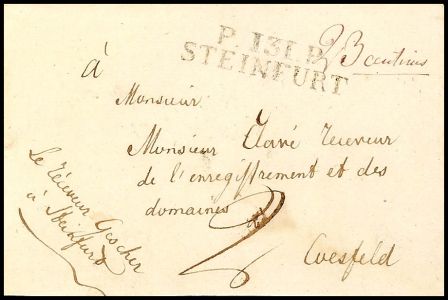 P. 131. P.
STEINFURT
23 centimes
à
Monsieur
Monsieur Javé receveur
de l'enregistrement et des
domaines
Coesfeld
Le receveur Gescher
à Steinfurt